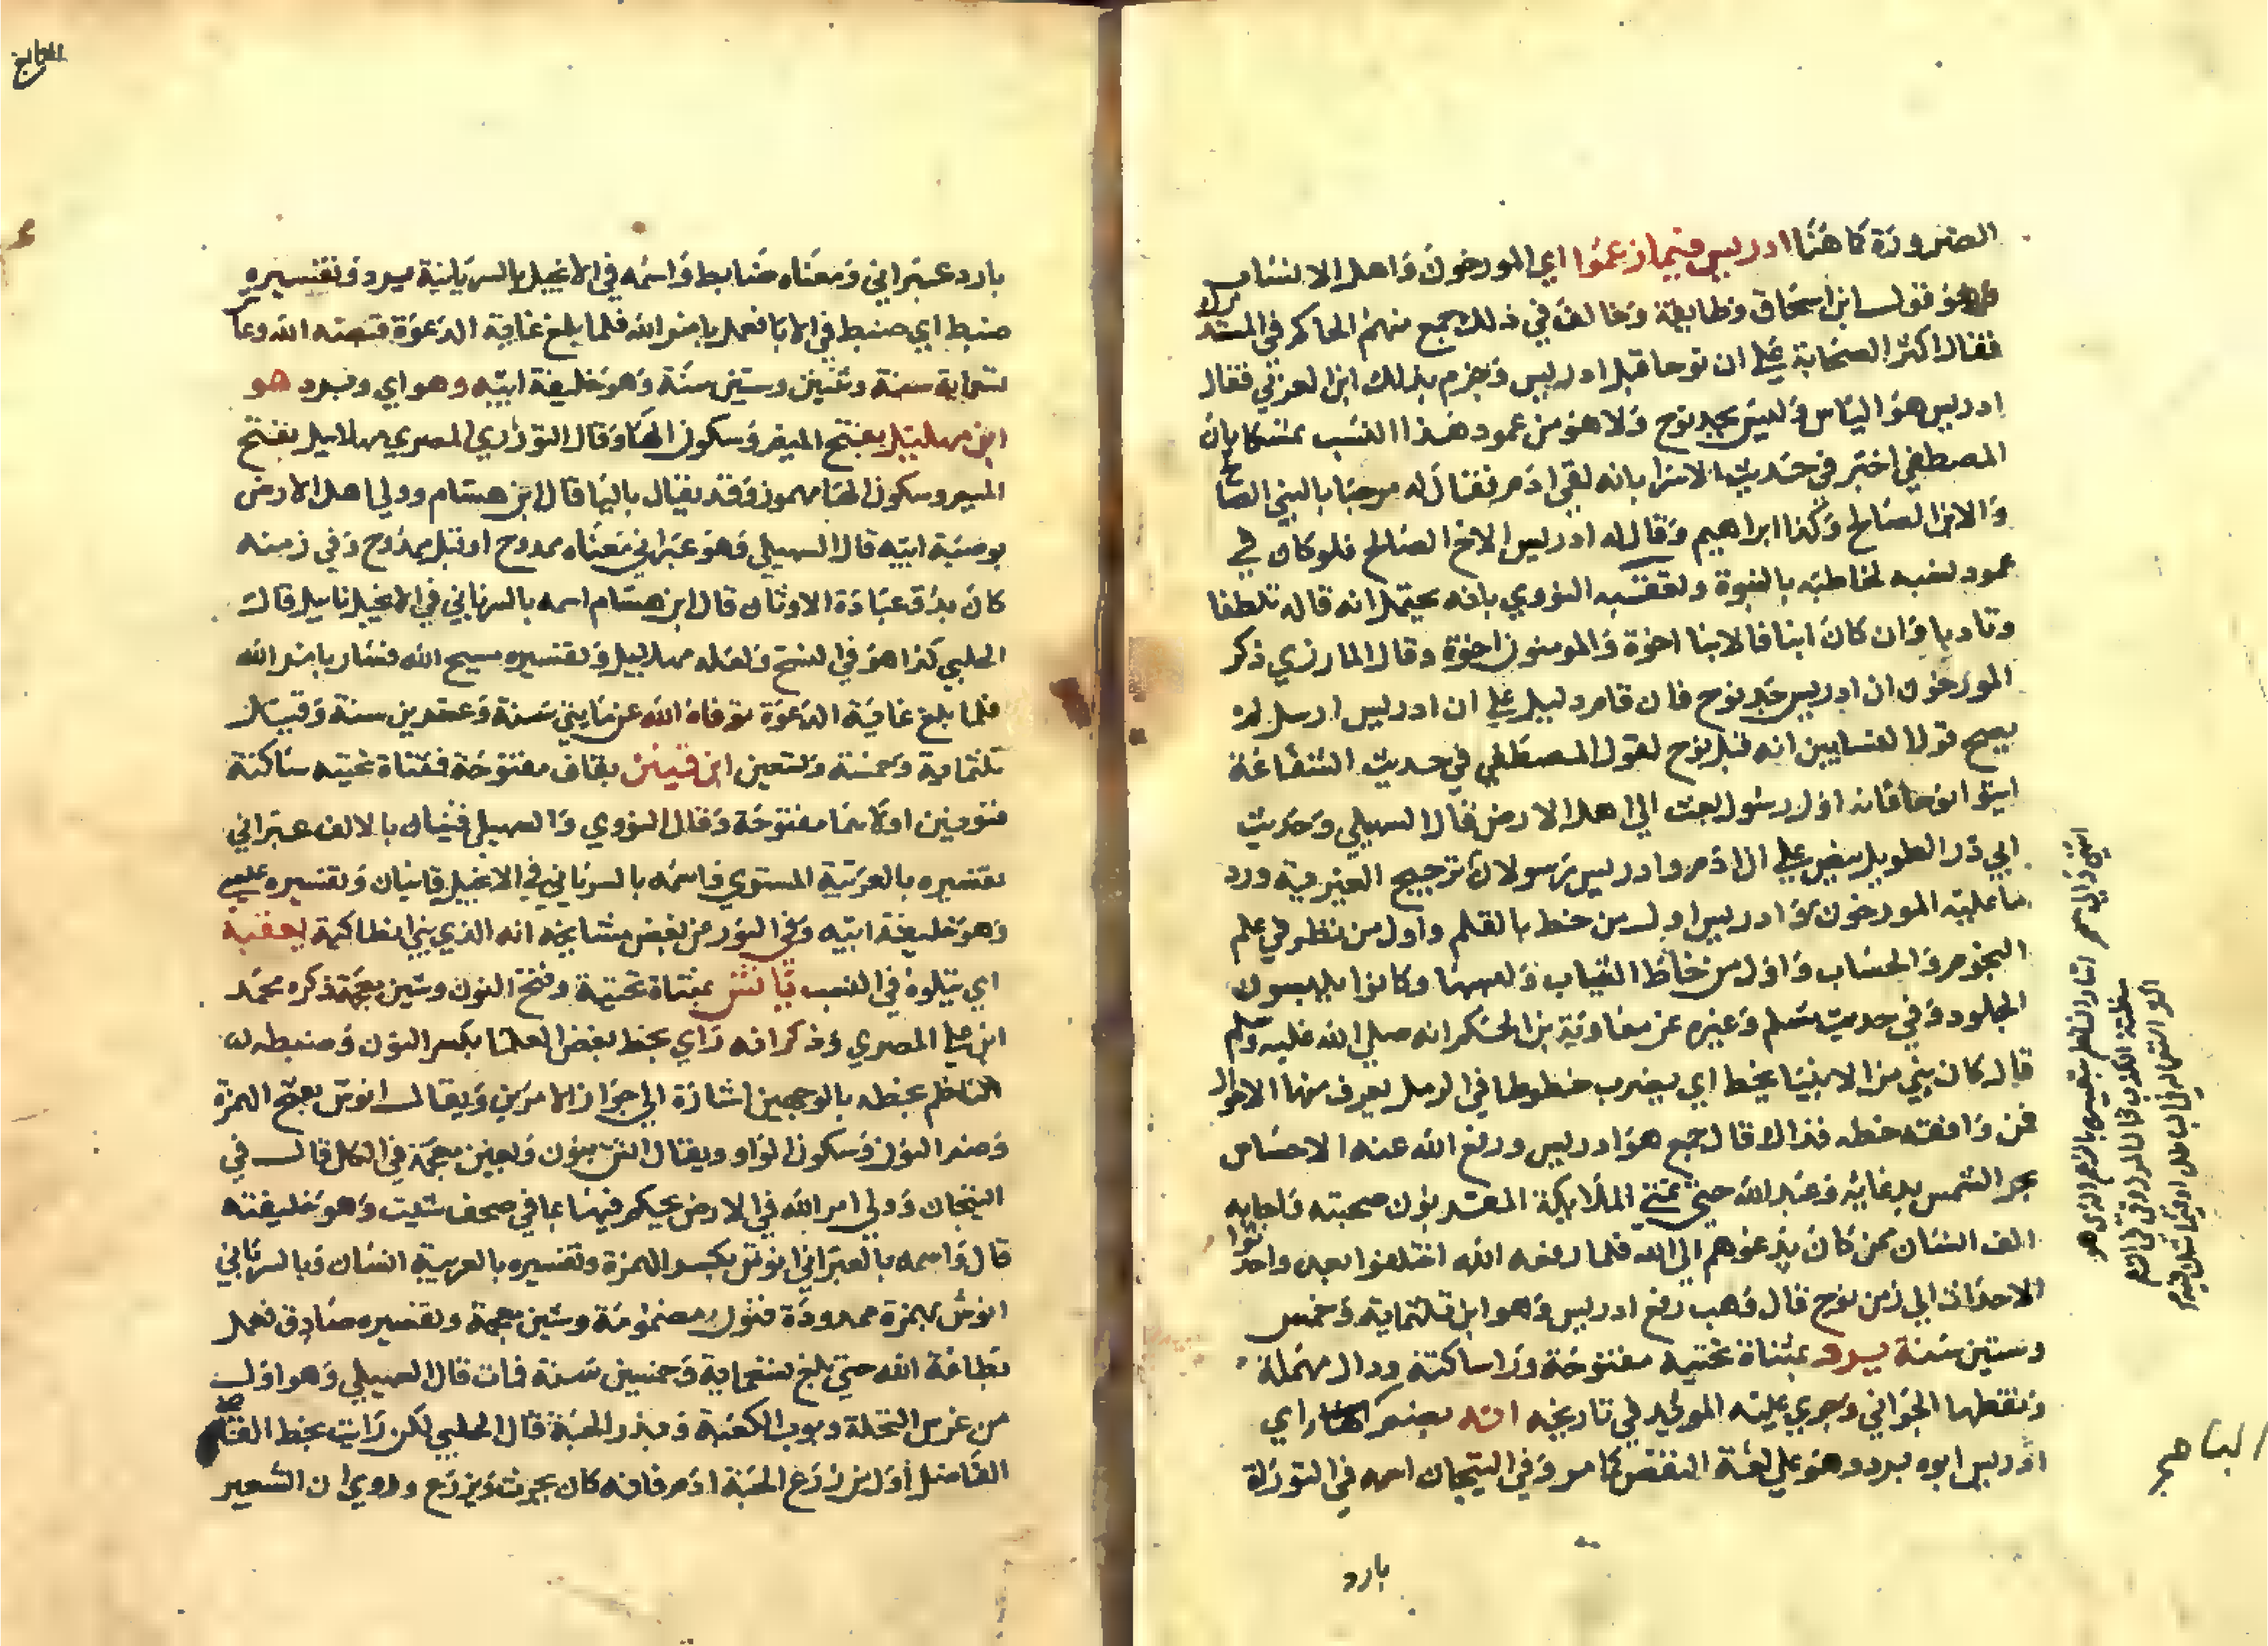 الضرورة كا هنا ادريس فيما زعموا اي المورخون واهل الانساب
هو قول ابن اسحاق وطايفة وخالف في ذلك جمع منهم الحاكم في المستدرك
فقال اكثر الصحابة علي ان نوحا قبل ادريس وجزم بذلك ابن العربي فقال
ادريس هو الياس وليس بجد نوح ولا هو من عمود هذا النسب متمسكا بان
المصطفي اخبر في حديث الاسرا بانه لقي ادم فقال له مرحبا بالنبي الصالح
والابن الصالح وكذا ابراهيم وقال له ادريس الاخ الصالح فلو كان في
عمود نسبه لخاطبه بالبنوة وتعقبه النووي بانه يحتمل انه قاله تلطفا
وتادبا وان كان ابنا فالابنا اخوة والمومنون اخوة وقال المازري ذكر
المورخون ان ادريس جد نوح فان قام دليل علي ان ادريس ارسل لم
يصح قول النسابين انه قبل نوح لقول المصطفي في حديث الشفاعة
ايتوا نوحا فانه اول رسول بعث الي اهل الارض قال السهيلي وحديث
ابي ذر الطويل ينص علي ان ادم وادريس رسولان ترجيح
ما عليه المورخون وادريس اول من خط بالقلم واول من نظر في علم
النجوم والحساب واول من خاط الثياب ولبسها وكانوا يلبسون
الجلود وفي حديث مسلم وغيره عن معاوية بن الحكم انه صلي الله عليه وسلم
قال كان نبي من الانبيا يخط اي يضرب خطوطا في الرمل يعرف منها الاحوال
فمن وافقه خطه فذاك قال جمع هو ادريس ورفع الله عنه الاحساس
بحر الشمس بدعايه وعبد الله حتي تمني الملايكة المقربون صحبته واجابه
الف انسان ممن كان يدعوهم الي الله فلما رفعه الله اختلفوا بعده واحدثوا
الاحداث الي زمن نوح قال وهب رفع ادريس وهو ابن ثلثماية وخمس
وستين سنة يرد بمثناة تحتية مفتوحة ورا ساكنة ودال مهملة
ونقطها الجواني وجري عليه المويد في تاريخه ابنه اي
ادريس ابوه يرد وهو علي لغة النقص كما مر وفي التيجان اسمه في التوراة
يارد
يارد عبراني ومعناه ضابط واسمه في الانجيل بالسريانية يرد وتفسيره
ضبط اي ضبط في الابا فعمل بامر الله فلما بلغ غاية الدعوة قبضه الله وعاش
تسماية سنة وثنين وستين سنة وهو خليفة ابيه وهو اي ويرد هو
ابن مهليل بفتح الميم وسكون الها وقال التوزري المصري مهلاييل بفتح
الميم وسكون الها مهموز وقد يقال باليا قال ابن هشام وولي اهل الارض
بوصية ابيه قال السهيلي وهو عبراني معناه ممدوح او قيل ممدوح وفي زمنه
كان بدؤ عبادة الاوثان قال ابن هشام اسمه بالسرياني في الانجيل نابيل قال
الحلبي كذا هو في النسخ ولعله مهلاييل وتفسيره مسبح الله فسار بامر الله
فلما بلغ غاية الدعوة توفاه الله عن مايتي سنة وعشرين سنة وقيل
ثلثماية وخمسة وتسعين ابن قينن بقاف مفتوحة فمثناة تحتيه ساكنة
فنونين اولاهما مفتوحة وقال النووي والسهيلي قينان بالالف عبراني
تفسيره بالعربية المستوي واسمه بالسرياني في الانجيل قانيان وتفسيره علي
وهو خليفة ابيه وفي النور عن بعض مشايخه انه الذي بني انطاكية يعقبه
اي يتلوه في النسب يانش بمثناة تحتية وفتح النون وشين معجمة ذكره محمد
ابن علي المصري وذكر انه راي بخط بعض العلما بكسر النون وضبطه
الناظم بخطه بالوجهين اشارة الي جواز الامرين ويقال انوش بفتح الهمزة
وضم النون وسكون الواو ويقال انش بنون وبشين معجمة في الكل قال في
التيجان وولي امر الله في الارض يحكم فيها بما في صحف شيث وهو خليفته
قال واسمه بالعبراني انوش بكسر الهمزة وتفسيره بالعربية انسان وبالسرياني
انوش بهمزة ممدودة فنون مضمومة وشين معجمة وتفسيره صادق فعمل
بطاعة الله حتي بلغ تسعماية وخمسين سنة فمات قال السهيلي وهو اول
من غرس النخلة وبوب الكعبة وبذر الحبة قال الحلبي لكن رايت بخط
الفاضل اول من زرع الحبة ادم فانه كان يحرث ويزرع وروي ان الشعير